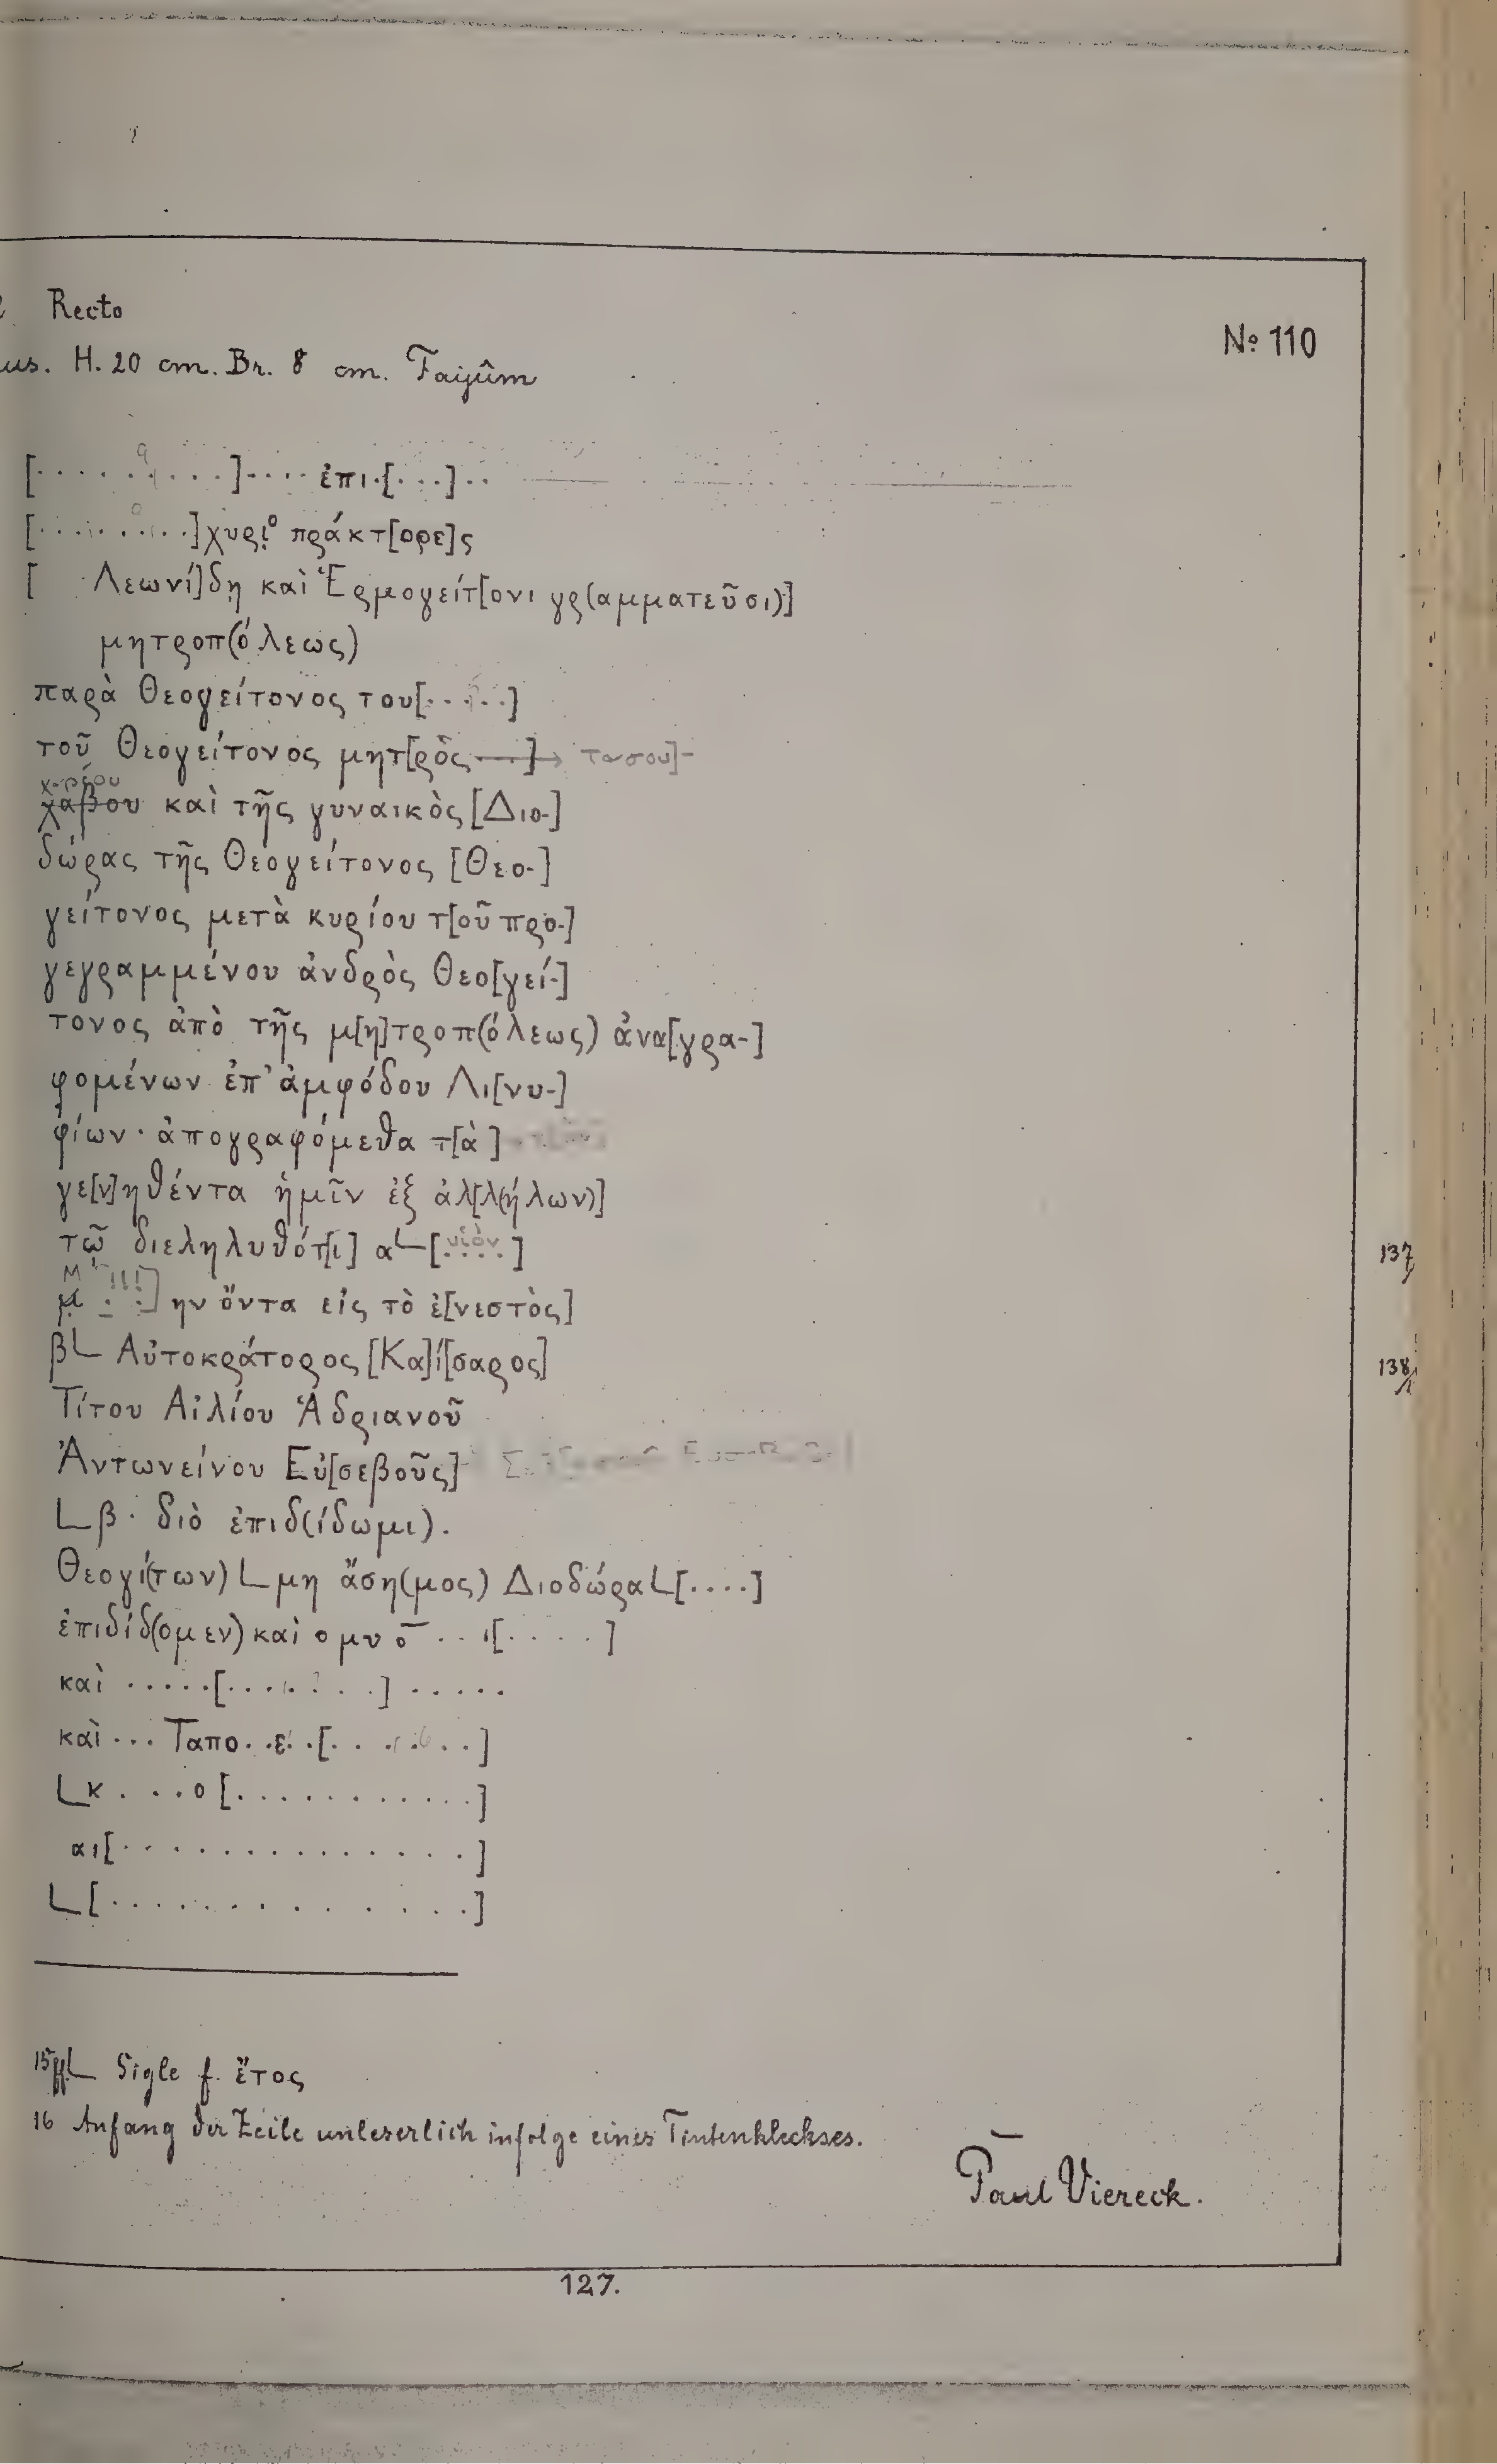 Recto
Nº 110
us. H. 20 cm. Br. 8 cm. Faijûm
[· · · · · · · · ·]· · · · ἐπι·[· · ·]· ·
[· · · · · · · ·]χυρι° πράκτ[ορε]ς
[ Λεωνί]δῃ καὶ Ἑρμογείτ[ονι γρ(αμματεῦσι)]
μητροπ(όλεως)
παρὰ Θεογείτονος του[· · · · ·]
τοῦ Θεογείτονος μητ[ρὸς —] τασου]-
χαβου καὶ τῆς γυναικὸς [Διο-]
δώρας τῆς Θεογείτονος [Θεο-]
γείτονος μετὰ κυρίου τ[οῦ προ-]
γεγραμμένου ἀνδρὸς Θεο[γεί-]
τονος ἀπὸ τῆς μ[η]τροπ(όλεως) ἀνα[γρα-]
φομένων ἐπ' ἀμφόδου Λι[νυ-]
φίων · ἀπογραφόμεθα τ[ὰ]
γε[ν]ηθέντα ἡμῖν ἐξ ἀλ[λ(ήλων)]
τῷ διεληλυθότ[ι] αL [υἱὸν] 137
μ . . ] ην ὄντα εἰς τὸ ἐ[νεστὸς]
βL Αὐτοκράτορος [Κα]ί[σαρος] 138
Τίτου Αἰλίου Ἁδριανοῦ
Ἀντωνείνου Εὐ[σεβοῦς]
L β · διὸ ἐπιδ(ίδωμι).
Θεογί(των) L μη ἄση(μος) Διοδώρα L[· · · ·]
ἐπιδίδ(ομεν) καὶ ο μυ ο̅ · · ι[· · · · ]
καὶ · · · · ·[· · · · · · · ·] · · · · ·
καὶ · · · Ταπο· ·ε· ·[· · · · · · ·]
Lκ . . . ο [· · · · · · · · · · ·]
αι[· · · · · · · · · · · · · ·]
L[· · · · · · · · · · · · ·]
15ff L Sigle f. ἔτος
16 Anfang der Zeile unleserlich infolge eines Tintenkleckses.
Paul Viereck.
127.